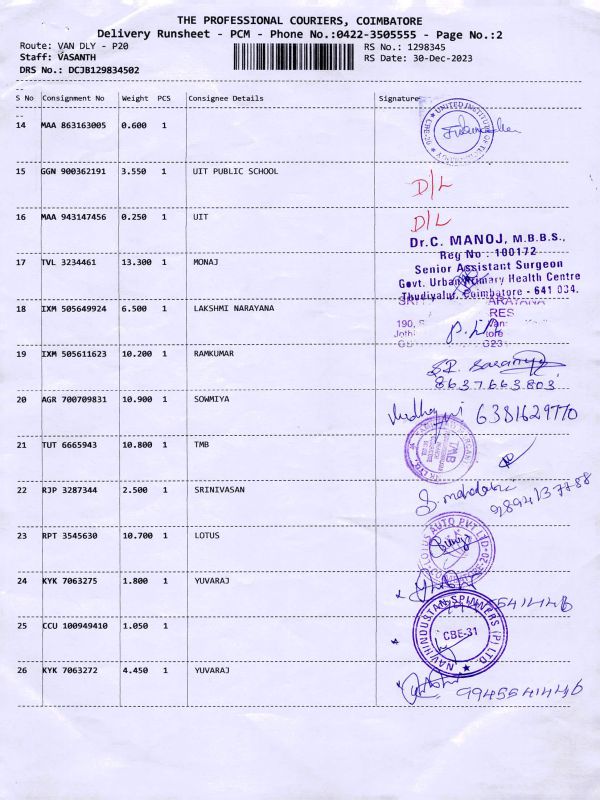 THE PROFESSIONAL COURIERS, COIMBATORE
Delivery Runsheet - PCM - Phone No.:0422-3505555 - Page No.:2
Route: VAN DLY - P20
RS No.: 1298345
Staff: VASANTH
RS Date: 30-Dec-2023
DRS No.: DCJB129834502
S No Consignment No Weight PCS Consignee Details Signature
14 MAA 863163005 0.600 1
UNITED INSTITUTE OF
15 GGN 900362191 3.550 1 UIT PUBLIC SCHOOL
D/L
16 MAA 943147456 0.250 1 UIT
D/L
Dr.C. MANOJ, M.B.B.S.,
Reg No : 100172
17 TVL 3234461 13.300 1 MONAJ
Senior Assistant Surgeon
Govt. Urban Primary Health Centre
Thudiyalur, Coimbatore - 641 034.
18 IXM 505649924 6.500 1 LAKSHMI NARAYANA
RES
190,
19 IXM 505611623 10.200 1 RAMKUMAR
8637663803
20 AGR 700709831 10.900 1 SOWMIYA
6381629770
21 TUT 6665943 10.800 1 TMB
TMB
22 RJP 3287344 2.500 1 SRINIVASAN
9894137788
23 RPT 3545630 10.700 1 LOTUS
LOTUS AUTO PVT LTD
24 KYK 7063275 1.800 1 YUVARAJ
25 CCU 100949410 1.050 1
NAV HINDUSTAN SPINNERS (P) LTD.
CBE-31
26 KYK 7063272 4.450 1 YUVARAJ